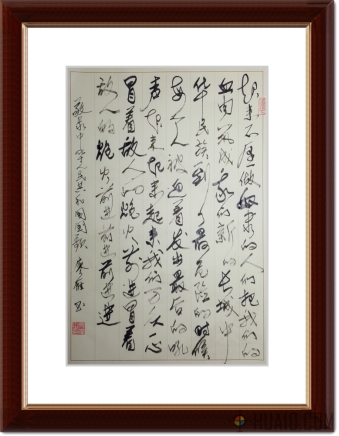 起来不愿做奴隶的人们把我们的
血肉筑成我们新的长城中
华民族到了最危险的时候
每个人被迫着发出最后的吼
声起来起来起来我们万众一心
冒着敌人的炮火前进冒着
敌人的炮火前进前进前进
敬录中华人民共和国国歌 书